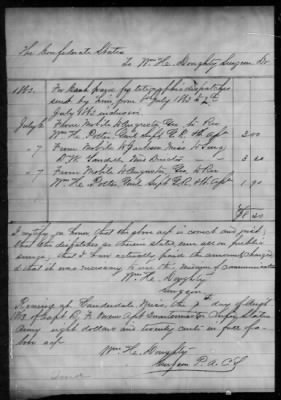 The Confederate States
To Wm. H. Doughty Surgeon Dr.
1862. For cash paid for telegraphic dispatches
sent by him from 1st July 1862 to
July 1862 inclusive
July 2 From Mobile to Augusta, Geo. to Rev
Wm. H. Potter, 3.00
" 7 From Mobile to Jackson Miss to Surg
D. W. Yandell Med. Director 3.20
" 7 From Mobile to Augusta, Geo to Rev
Wm. H. Potter,
$8.20
I certify, on honor, that the above acct is correct and just;
that the dispatches as therein stated, were all on public
service; that I have actually paid the amount charged
& that it was necessary to use this means of communication
Wm. H. Doughty
Surgeon
Received at Lauderdale Miss. the day of
of Capt Quartermaster Confed States
Army eight dollars and twenty cents in full of a-
bove acct.
Wm. H. Doughty
Surgeon P. A. C. S.